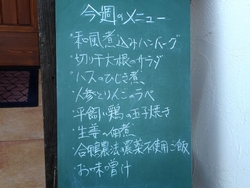 今週のメニュー
・和風煮込みハンバーグ
・切り干大根のサラダ
・ハスのひじき煮
・人参とりんごのラペ
・平飼い鶏の玉子焼き
・生姜の佃煮
・合鴨農法 農薬不使用ご飯
・お味噌汁